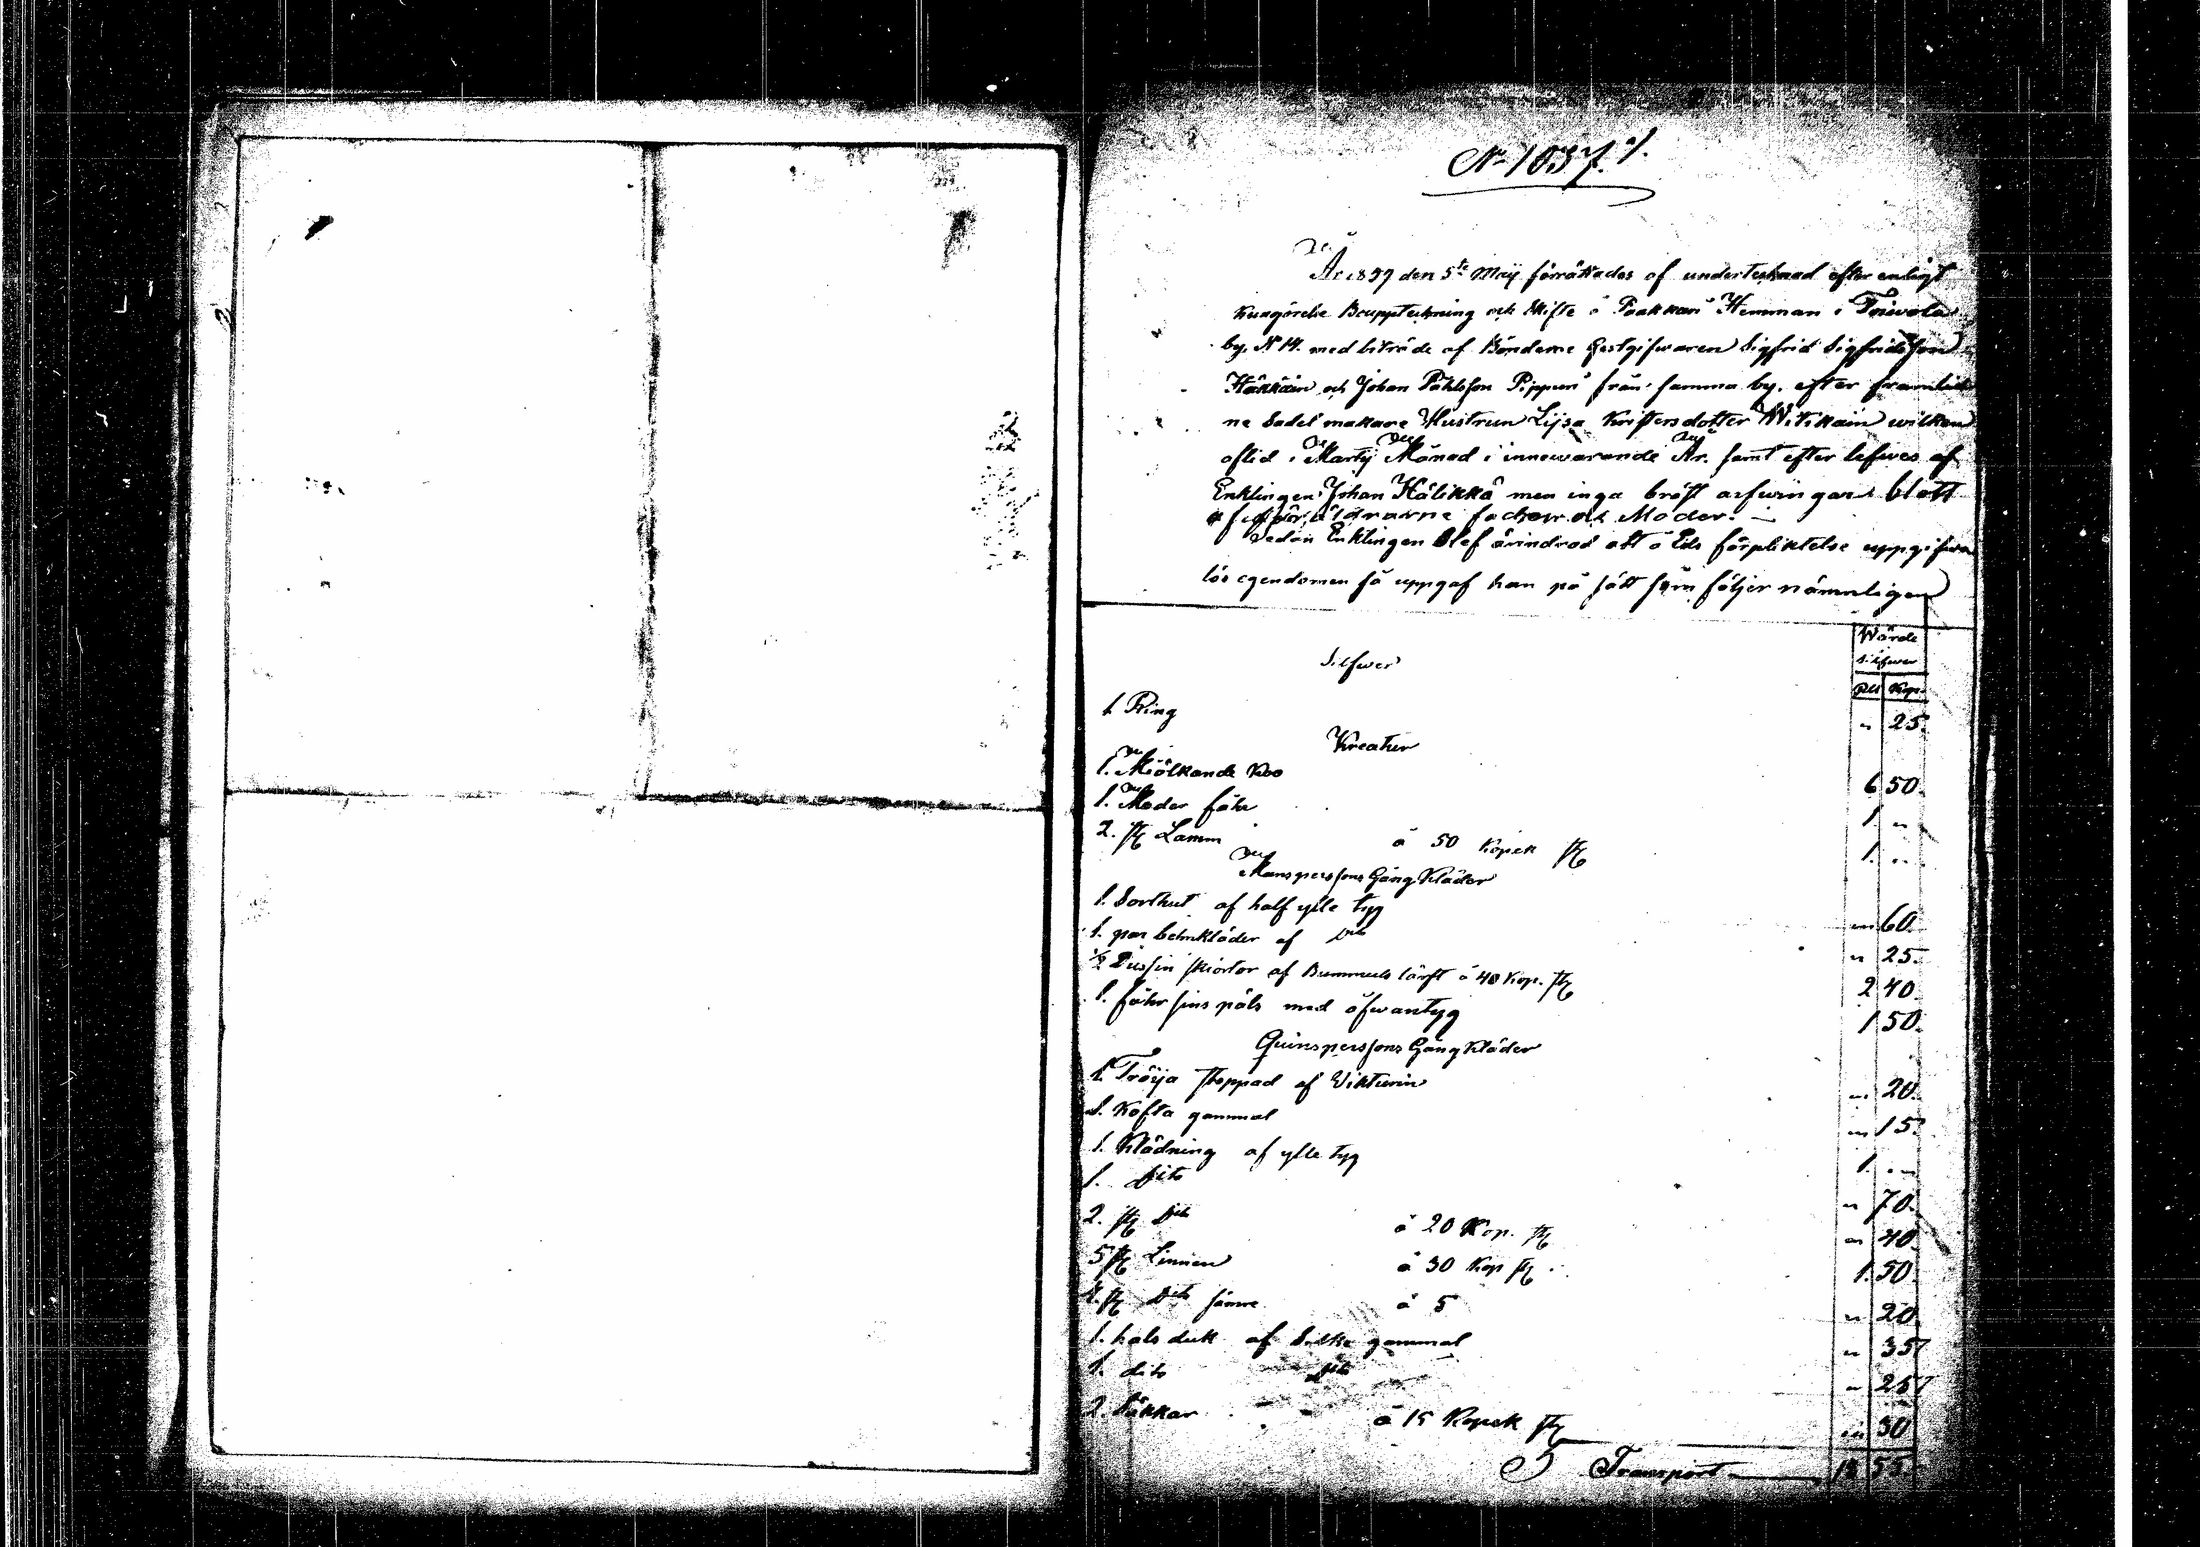 N 1037.
År 1859 den 5te Maij förrättades af undertecknad efter enligt
kungörelse Bouppteckning och skifte å Paakkari Hemman i Toivola
by. N 14. med biträde af Bönderne Gestgifwaren Sigfrid Sigfridsson
Häkkäin och Johan Påhlsson Pippuri från samma by. efter framlid
ne Sadelmakare Hustrun Lijsa Kristersdotter Witikain wilken
aflid i Martij Månad i innewarande År. samt efter lefwes af
Enklingen Johan Hälikkä men inga bröst arfwingar blott
föräldrarne fader och Moder.
Sedan Enklingen blef ärindrad att å Eds förpliktelse uppgifwa
lös egendomen så uppgaf han på sätt som följer nämnligen
Wärde
silfwer
Rub Kop.
Silfwer
1 Ring " 25.
Kreatur
1. Miölkande Koo 6 50.
1. Moder fåhr 1. "
2. st Lamm å 50 Kopek st 1. "
Manspersons Gång Kläder
1. Sorthut af half ylle tyg " 60.
1. par beinkläder af Dito " 25.
1/2 Dussin skiortor af Bummuls lärft å 40 Kop. st 2 40.
1. fåhrskins päls med öfwantyg 1 50.
Quinspersons Gång Kläder
1. Tröija stoppad af Vikturin " 20.
1. Kofta gammal " 15.
1. Klädning af ylle tyg 1. "
1. Dito " 70.
2. st Dito å 20 Kop. st " 40.
5 st Linnen å 30 Kop st 1. 50.
4. st Dito sämre å 5 " 20
1. halsduk af Silke gammal " 35
1. dito Dito " 25
2. Säkkar å 15 Kopek st " 30
Transport 18 55.